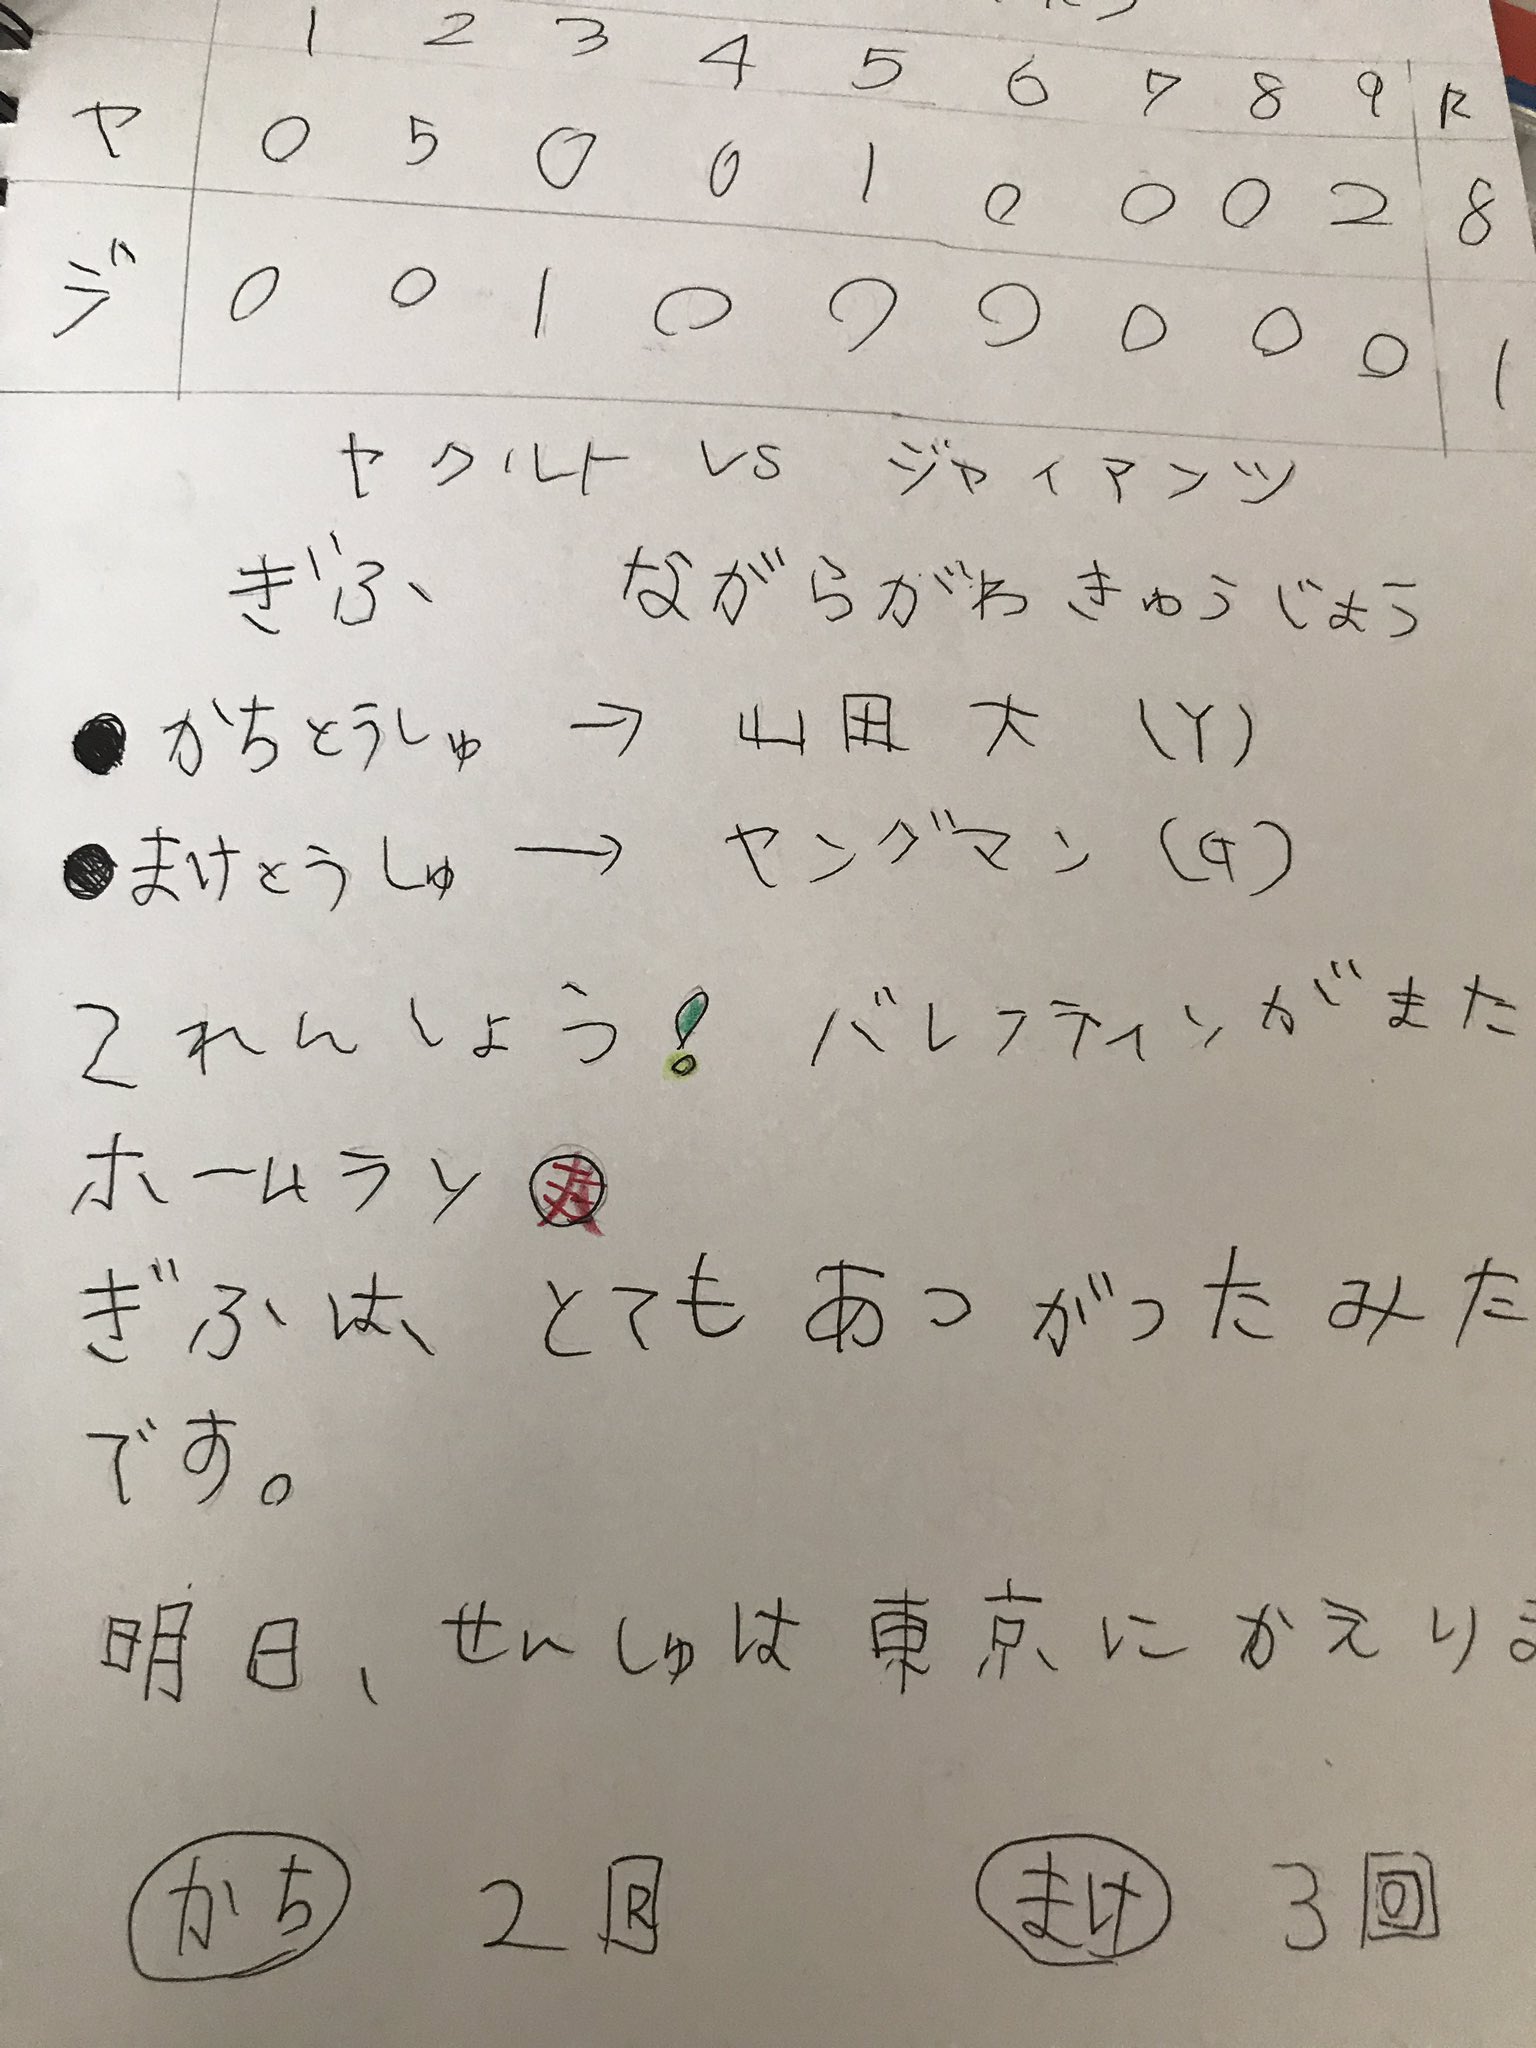 1 2 3 4 5 6 7 8 9 R
ヤ 0 5 0 0 1 0 0 0 2 8
ジ 0 0 1 0 0 0 0 0 0 1
ヤクルト VS ジャイアンツ
ぎふ ながらがわきゅうじょう
● かちとうしゅ → 山田 大 (Y)
● まけとうしゅ → ヤングマン (G)
2れんしょう! バレンティンがまた
ホームラン
ぎふは、とてもあつがったみた
です。
明日、せんしゅは東京にかえりま
かち 2回 まけ 3回